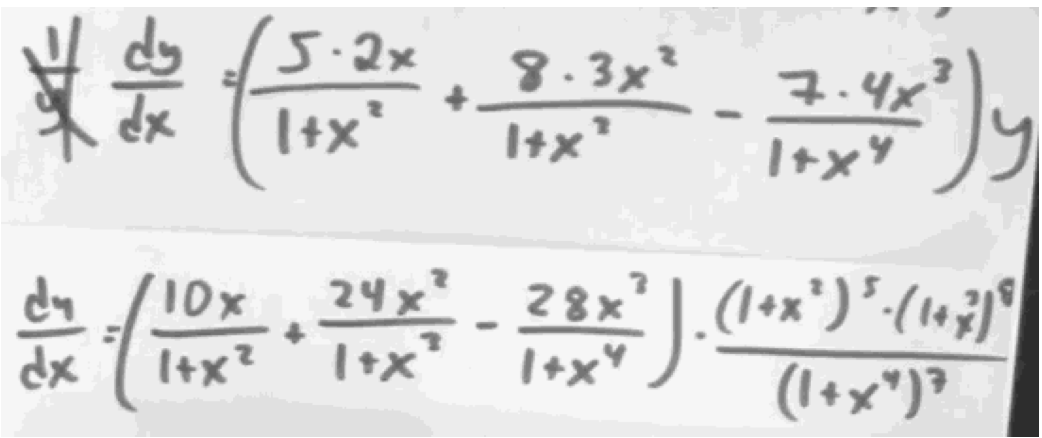 1/y dy/dx = (5·2x/(1+x²) + 8·3x²/(1+x³) − 7·4x³/(1+x⁴))y
dy/dx = (10x/(1+x²) + 24x²/(1+x³) − 28x³/(1+x⁴)) · (1+x²)⁵·(1+x³)⁸/(1+x⁴)⁷